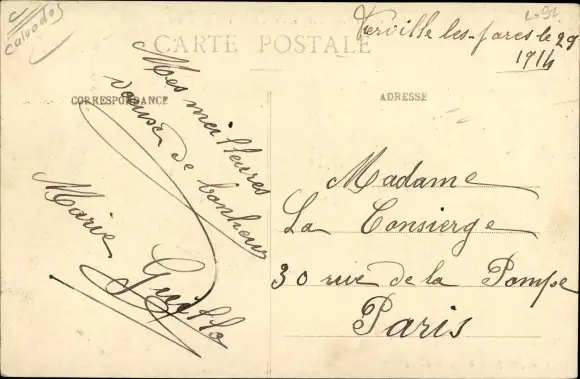 Calvados
CARTE POSTALE
Vierville les-pores le 29
1914
CORRESPONDANCE
ADRESSE
Mes meilleures
voeuse de bonheur
Marie Guillo
Madame
La Consierge
30 rue de la Pompe
Paris